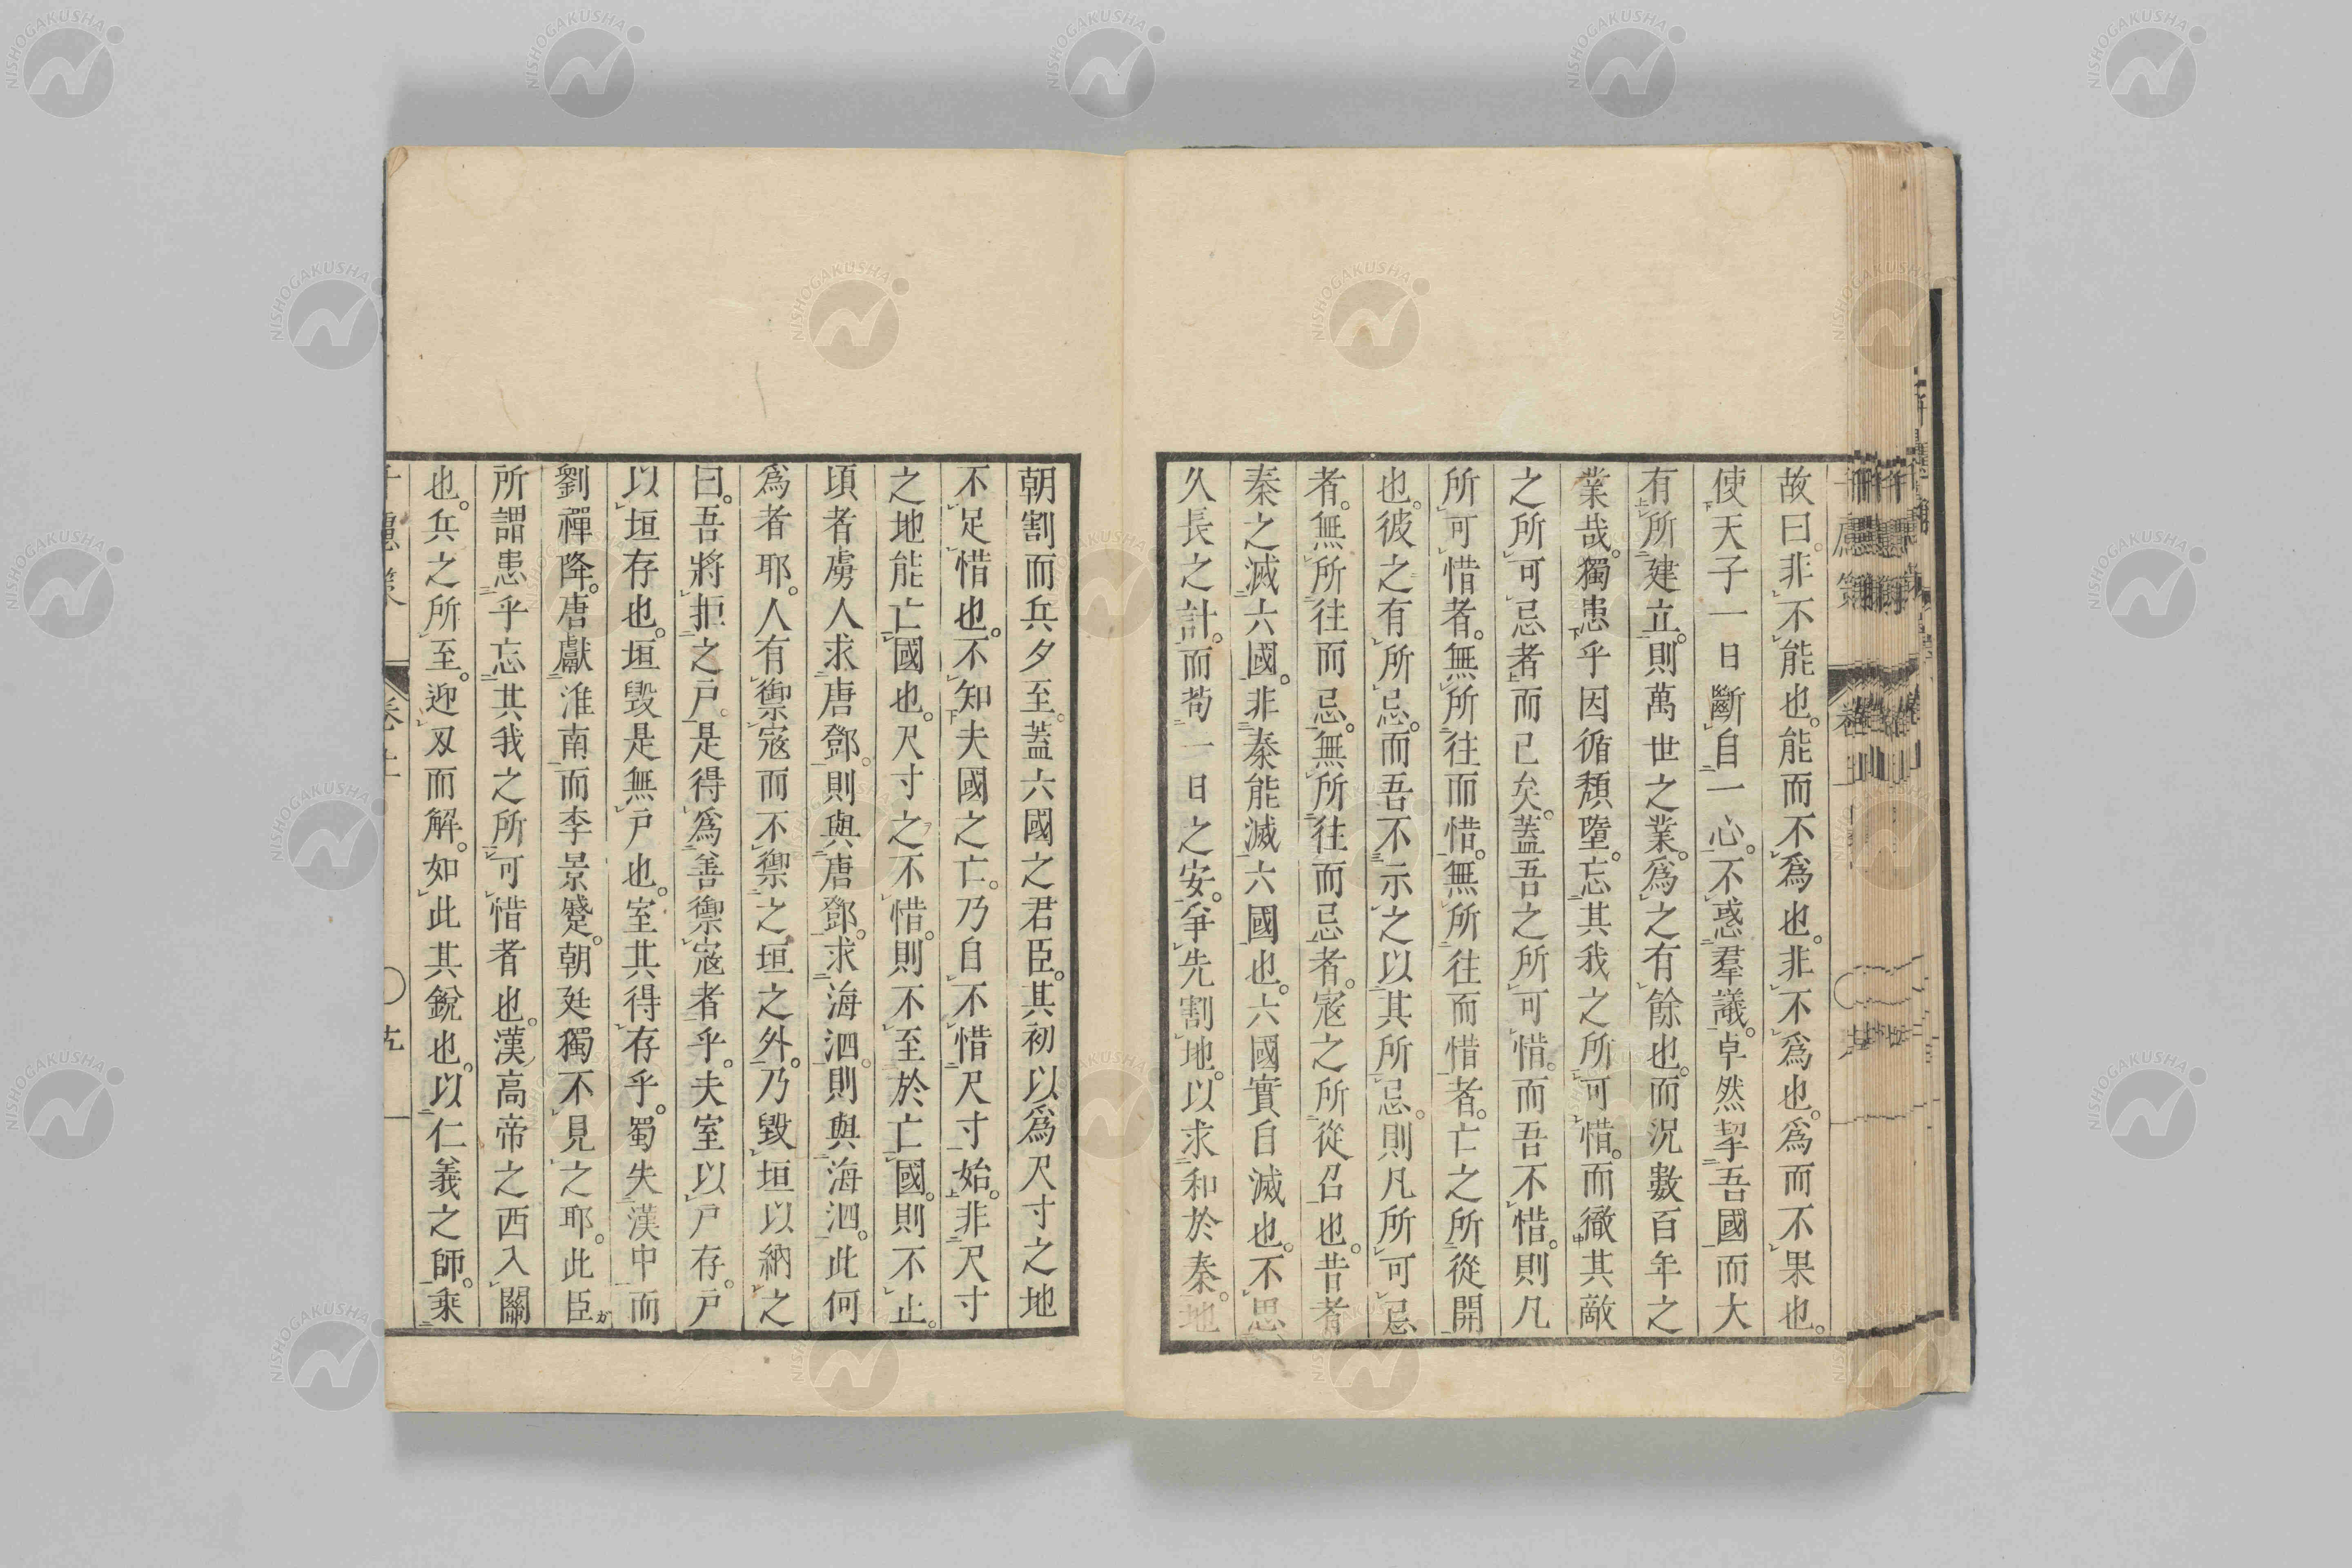 故曰。非不能也。能而不爲也。非不爲也。爲而不果也。
使天子一日斷自一心。不惑羣議。卓然挈吾國而大
有所建立。則萬世之業。爲之有餘也。而況數百年之
業哉。獨患乎因循頹墮。忘其我之所可惜。而徼其敵
之所可忌者而已矣。蓋吾之所可惜。而吾不惜。則凡
所可惜者。無所往而惜。無所往而惜者。亡之所從開
也。彼之有所忌。而吾不示之以其所忌。則凡所可忌
者。無所往而忌。無所往而忌者。寇之所從召也。昔者
秦之滅六國。非秦能滅六國也。六國實自滅也。不思
久長之計。而苟一日之安。爭先割地。以求和於秦。地
朝割而兵夕至。蓋六國之君臣。其初以爲尺寸之地
不足惜也。不知夫國之亡。乃自不惜尺寸始。非尺寸
之地能亡國也。尺寸之不惜。則不至於亡國。則不止。
頃者虜人求唐鄧。則與唐鄧。求海泗。則與海泗。此何
爲者耶。人有禦寇而不禦之垣之外。乃毀垣以納之
曰。吾將拒之戶。是得爲善禦寇者乎。夫室以戶存。戶
以垣存也。垣毀是無戶也。室其得存乎。蜀失漢中而
劉禪降。唐獻淮南而李景蹙。朝廷獨不見之耶。此臣
所謂患乎忘其我之所可惜者也。漢高帝之西入關
也。兵之所至。迎刃而解。如此其銳也。以仁義之師。乘
千慮策
NISHOGAKUSHA